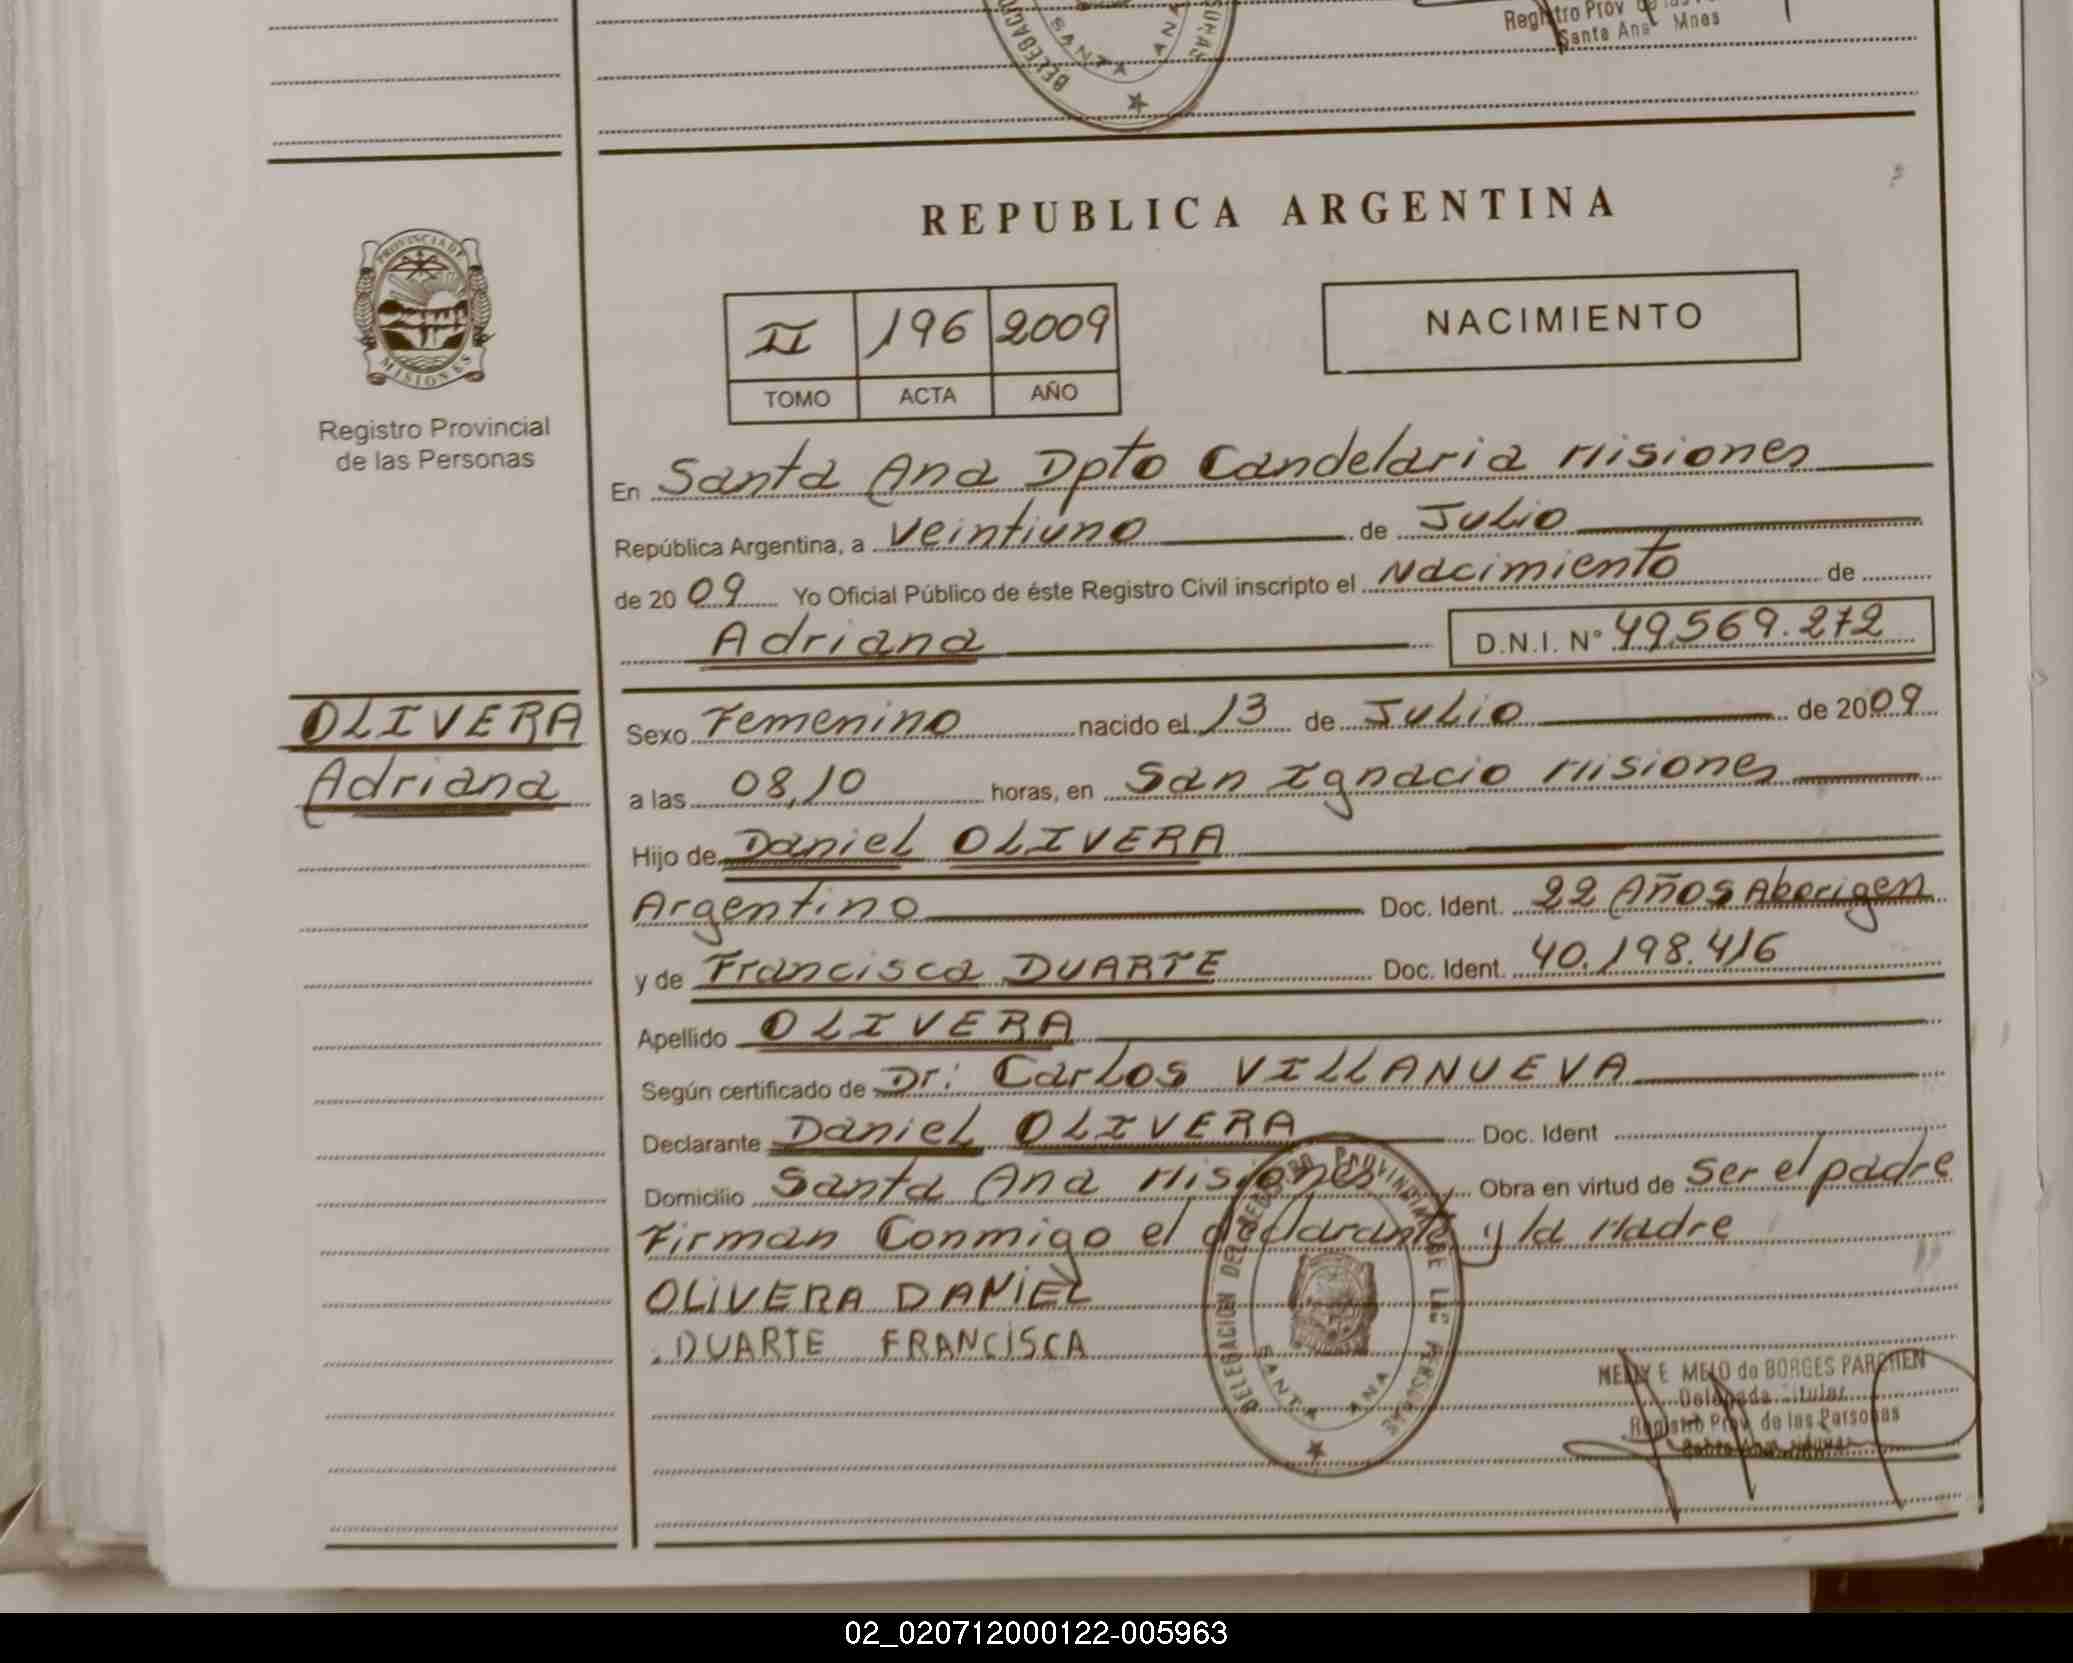 DELEGACION
SANTA ANA
Registro Prov
Santa Ana Mnes
REPUBLICA ARGENTINA
PROVINCIA DE
MISIONES
Registro Provincial
de las Personas
II 196 2009
TOMO ACTA AÑO
NACIMIENTO
En Santa Ana Dpto Candelaria Misiones
República Argentina, a Veintiuno de Julio
de 2009 Yo Oficial Público de éste Registro Civil inscripto el Nacimiento de
Adriana D.N.I. N° 49.569.272
OLIVERA
Adriana
Sexo Femenino nacido el 13 de Julio de 2009
a las 08,10 horas, en San Ignacio Misiones
Hijo de Daniel OLIVERA
Argentino Doc. Ident. 22 Años Aborigen
y de Francisca DUARTE Doc. Ident. 40.198.416
Apellido OLIVERA
Según certificado de Dr: Carlos VILLANUEVA
Declarante Daniel OLIVERA Doc. Ident
Domicilio Santa Ana Misiones Obra en virtud de Ser el padre
Firman Conmigo el declarante y la Madre
OLIVERA DANIEL
DUARTE FRANCISCA
DELEGACION DEL REGISTRO PROVINCIAL DE LAS PERSONAS
SANTA ANA
NELLY E. MELO de BORGES PARCHEN
Delegada Titular
Registro Prov. de las Personas
02_020712000122-005963